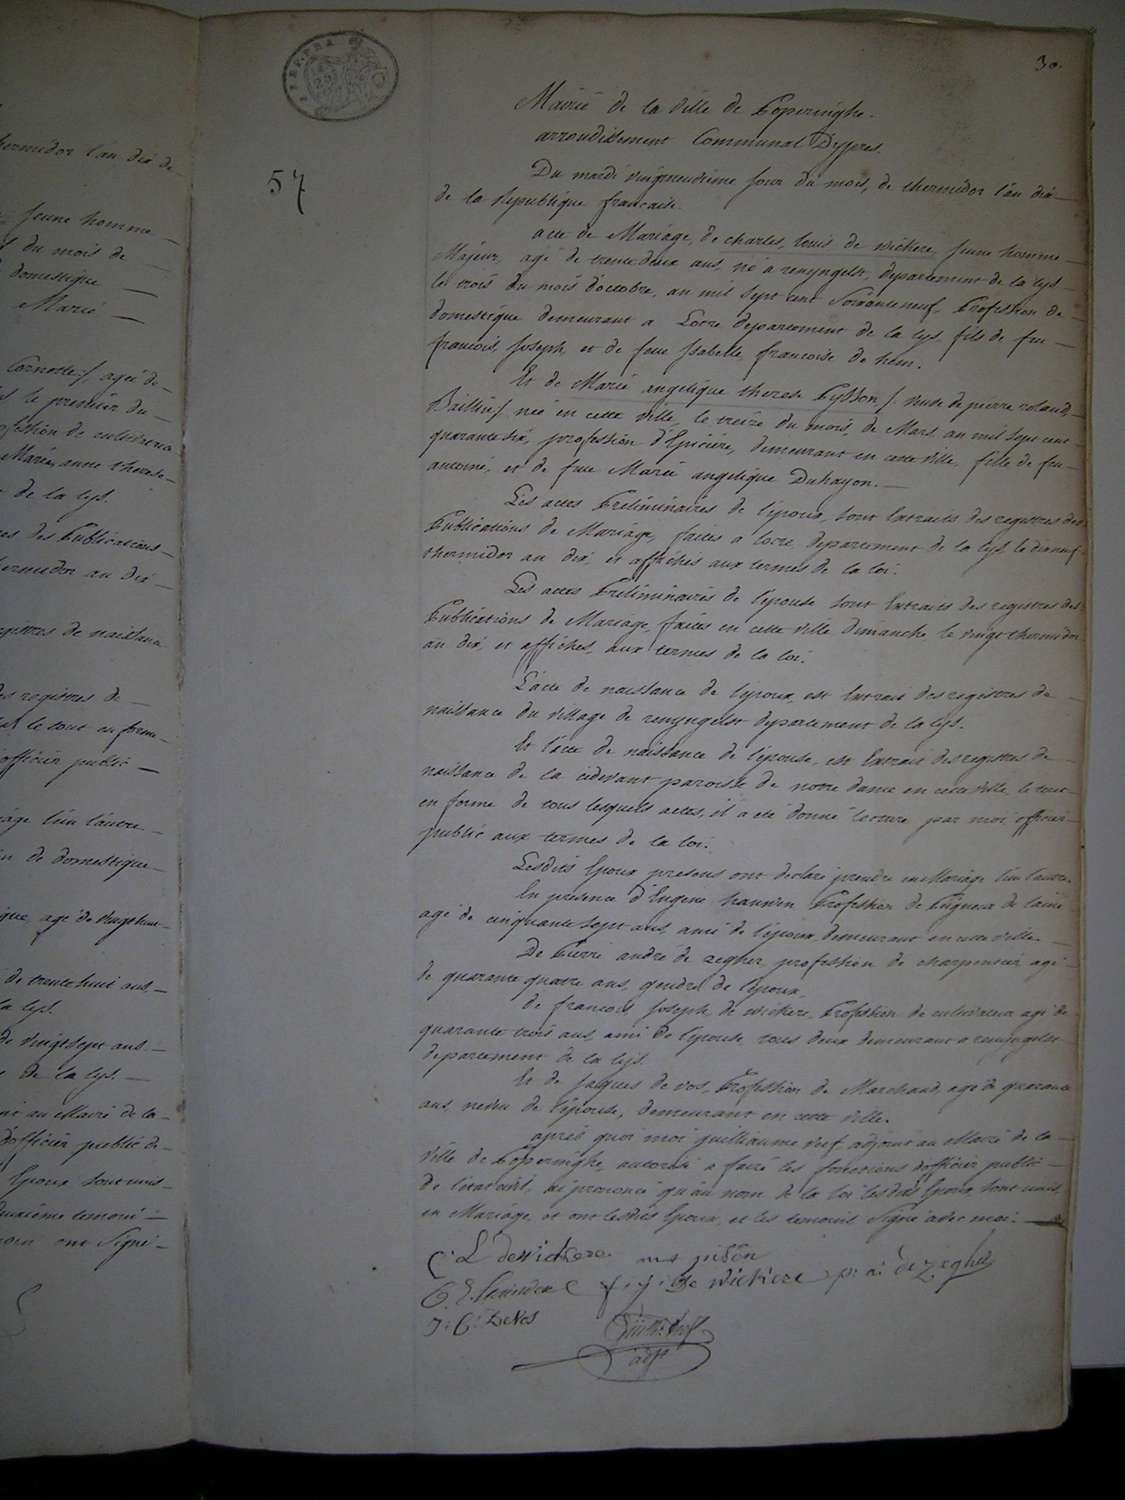 hermidor l'an dix de
Jeune homme
du mois de
domestique
Marié
Cornette / agée de
le premier du
profession de cultivateur
Marie anne therese
de la lys.
des Publications
hermidor an dix
registres de naissance
des registres de
le tout en forme
officier public
l'un l'autre
de domestique
agé de vingt
de trente huit ans
la lys.
de vingt sept ans
de la lys.
au Maire de la
d'officier public de
Epoux sont unis
temoin
ont Signé
REP. FRA.
30.
57
Mairie de la ville de Poperinghe.
arrondissement Communal D'ypres.
Du mardi vingtneuvieme jour du mois de thermidor l'an dix
de la Republique francaise.
acte de Mariage, de charles louis de wickere, Jeune homme
Majeur, agé de trente deux ans, né a renynghelst, departement de la lys
les trois du mois d'octobre, an mil sept cent Soixanteneuf, Profession de
domestique demeurant a Locre departement de la lys, fils de feu
francois Joseph, et de feue Isabelle francoise de hem.
Et de Marie angelique therese Pysson / veuve de pierre roland
Baillin / née en cette ville, le treize du mois de Mars an mil sept cent
quarante six, profession d'Epiciere, demeurant en cette ville, fille de feu
antoine, et de feue Marie angelique Duhayon.
Les actes Preliminaires de l'epoux, sont Extraits des registres des
Publications de Mariage, faites a locre departement de la lys le dixneuf
thermidor an dix, et affichés aux termes de la loi.
Les actes Preliminaires de l'epouse sont Extraits des registres des
Publications de Mariage, faites en cette ville Dimanche le vingt thermidor
an dix, et affichés aux termes de la loi.
L'acte de naissance de l'epoux, est Extrait des registres de
naissance du village de renyngelst departement de la lys.
Et l'acte de naissance de l'epouse, est Extrait des registres de
naissance de la cidevant paroisse de notre dame en cette ville, le tout
en forme de tous lesquels actes, il a eté donné lecture par moi officier
public aux termes de la loi.
Lesdits Epoux presens ont declaré prendre en Mariage l'un l'autre.
En presence d'Eugene Profession de Peigneur de laine
agé de cinquante sept ans, ami de l'epoux, demeurant en cette ville.
De Pierre andré de zegher profession de charpentier agé
de quarante quatre ans, gendre de l'epoux,
de francois Joseph de wickere, Profession de cultivateur agé de
quarante trois ans, ami de l'epouse, tous deux demeurant a renyngelst
departement de la lys.
Et de Jacques de vos, Profession de Marchand, agé de quarante
ans, neveu de l'epouse, demeurant en cette ville.
après quoi moi guilliaume adjoint au Maire de la
ville de Poperinghe, autorisé a faire les fonctions d'officier public
de l'etat civil, ai prononcé qu'au nom de la loi lesdits Epoux, sont unis
en Mariage, et ont lesdits Epoux, et les temoins Signé avec moi.
C: L dewickere m a pison
f: j: de wickere p: a: de Zegher
J: C: DeVos
adjt